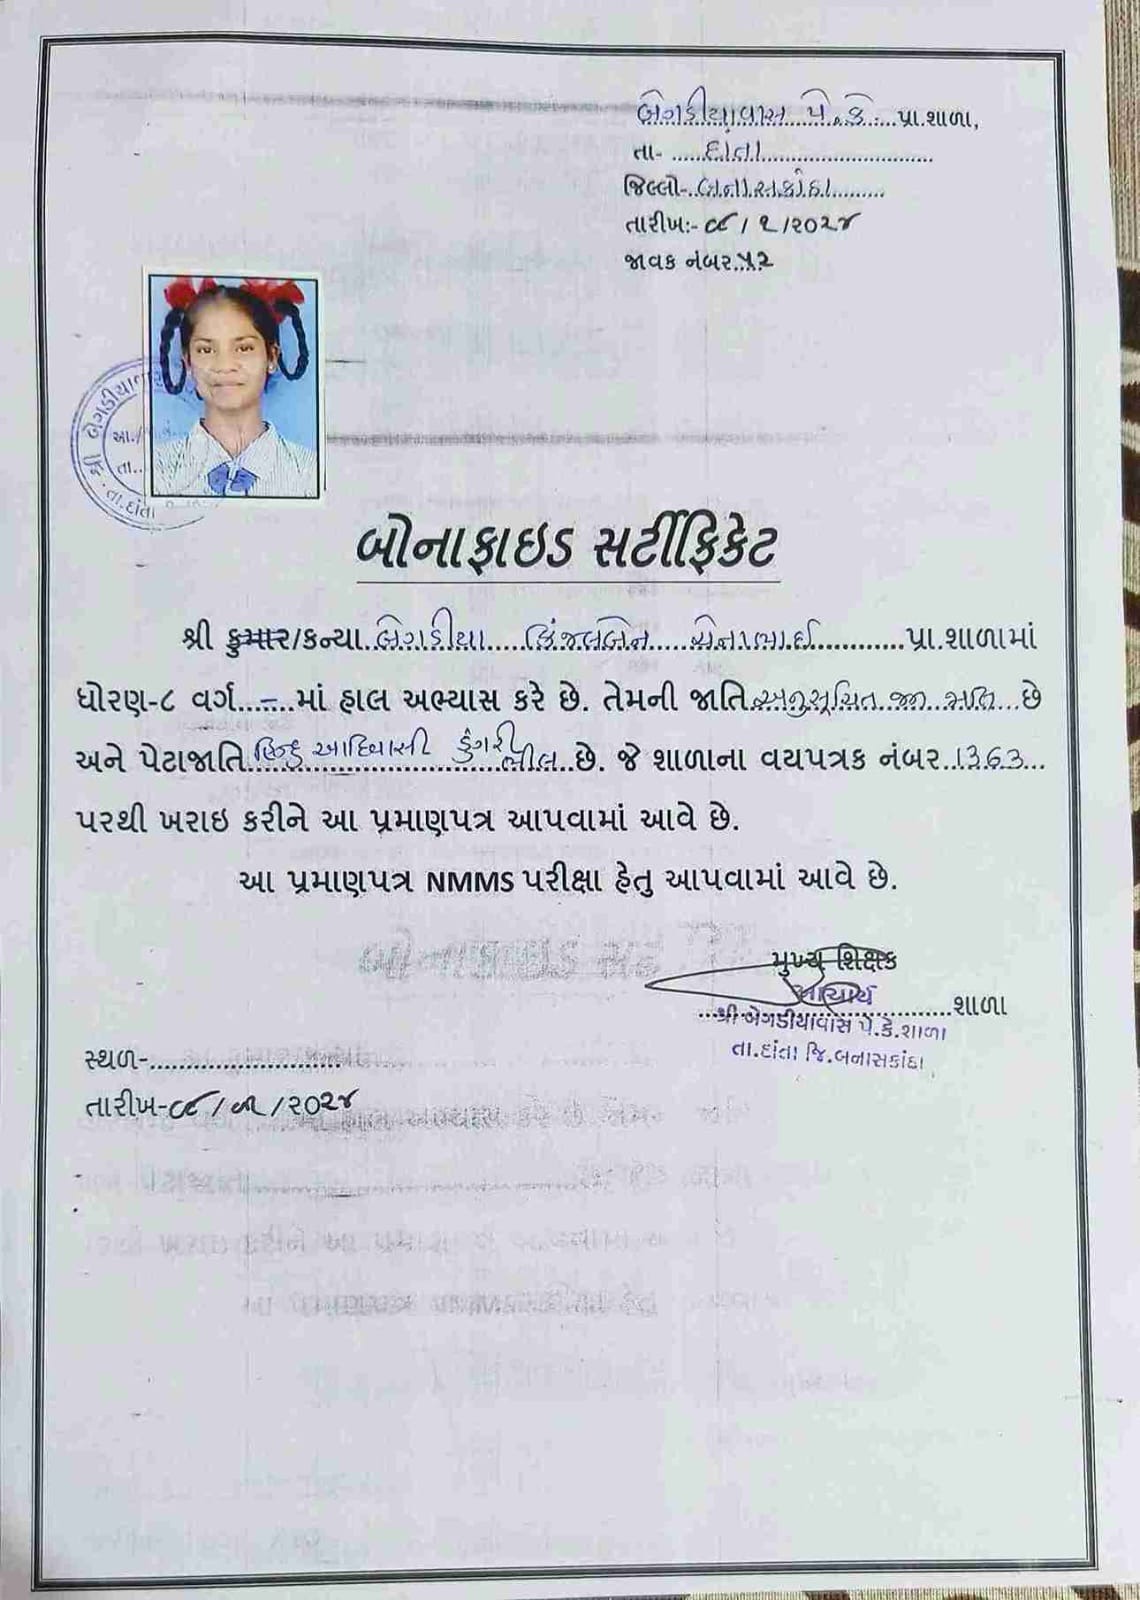 બેગડીયાવાસ પે.કે. પ્રા.શાળા,
તા- દાંતા
જિલ્લો- બનાસકાંઠા
તારીખ:- ૦૮/૨/૨૦૨૪
જાવક નંબર ૫૨
શ્રી બેગડીયાવાસ
આ./
તા.
તા.દાંતા
બોનાફાઇડ સર્ટીફિકેટ
શ્રી કુમાર/કન્યા બેગડીયા કિંજલબેન સેનાભાઈ પ્રા.શાળામાં
ધોરણ-૮ વર્ગ - માં હાલ અભ્યાસ કરે છે. તેમની જાતિ અનુસૂચિત જન જાતિ છે
અને પેટાજાતિ હિન્દુ આદિવાસી ડુંગરી ભીલ છે. જે શાળાના વયપત્રક નંબર 1363
પરથી ખરાઇ કરીને આ પ્રમાણપત્ર આપવામાં આવે છે.
આ પ્રમાણપત્ર NMMS પરીક્ષા હેતુ આપવામાં આવે છે.
મુખ્ય શિક્ષક
આચાર્ય
શાળા
શ્રી બેગડીયાવાસ પે.કે.શાળા
તા.દાંતા જિ.બનાસકાંઠા
સ્થળ-
તારીખ-૦૮/૦૨/૨૦૨૪